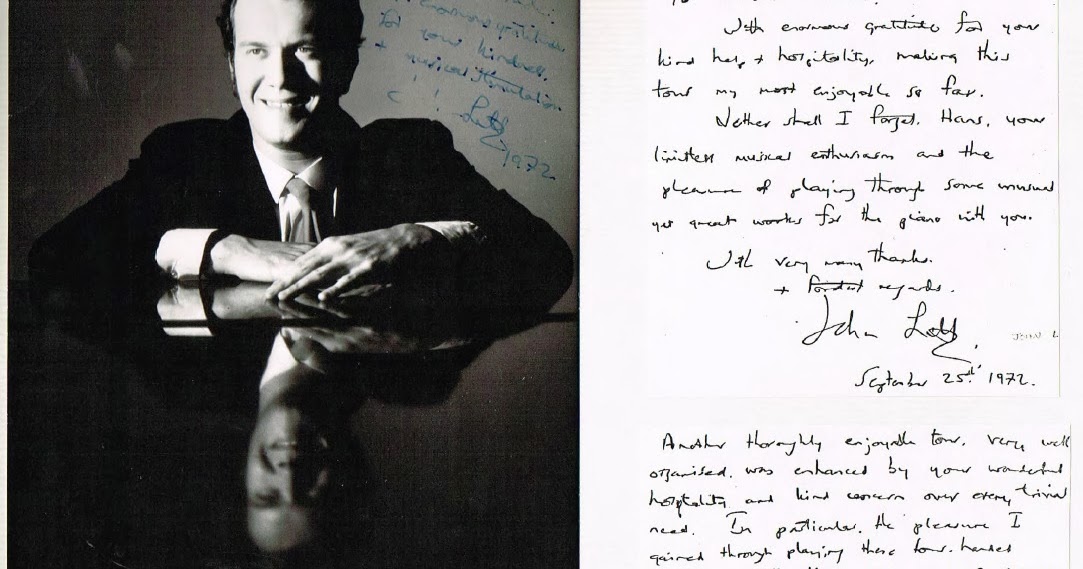 enormous gratitude
for your kindness,
+ musical stimulation
!
1972
With enormous gratitude for your
kind help + hospitality, making this
tour my most enjoyable so far.
Nether shall I forget, Hans, your
limitless musical enthusiasm and the
pleasure of playing through some unusual
yet great works for the piano with you.
With very many thanks.
+ fondest regards.
John
JOHN L
September 25th 1972.
Another thoroghly enjoyable tour, very well
organised, was enhanced by your wonderful
hospitality and kind concern over every trivial
need. In particular, the pleasure I
gained through playing these four-handed